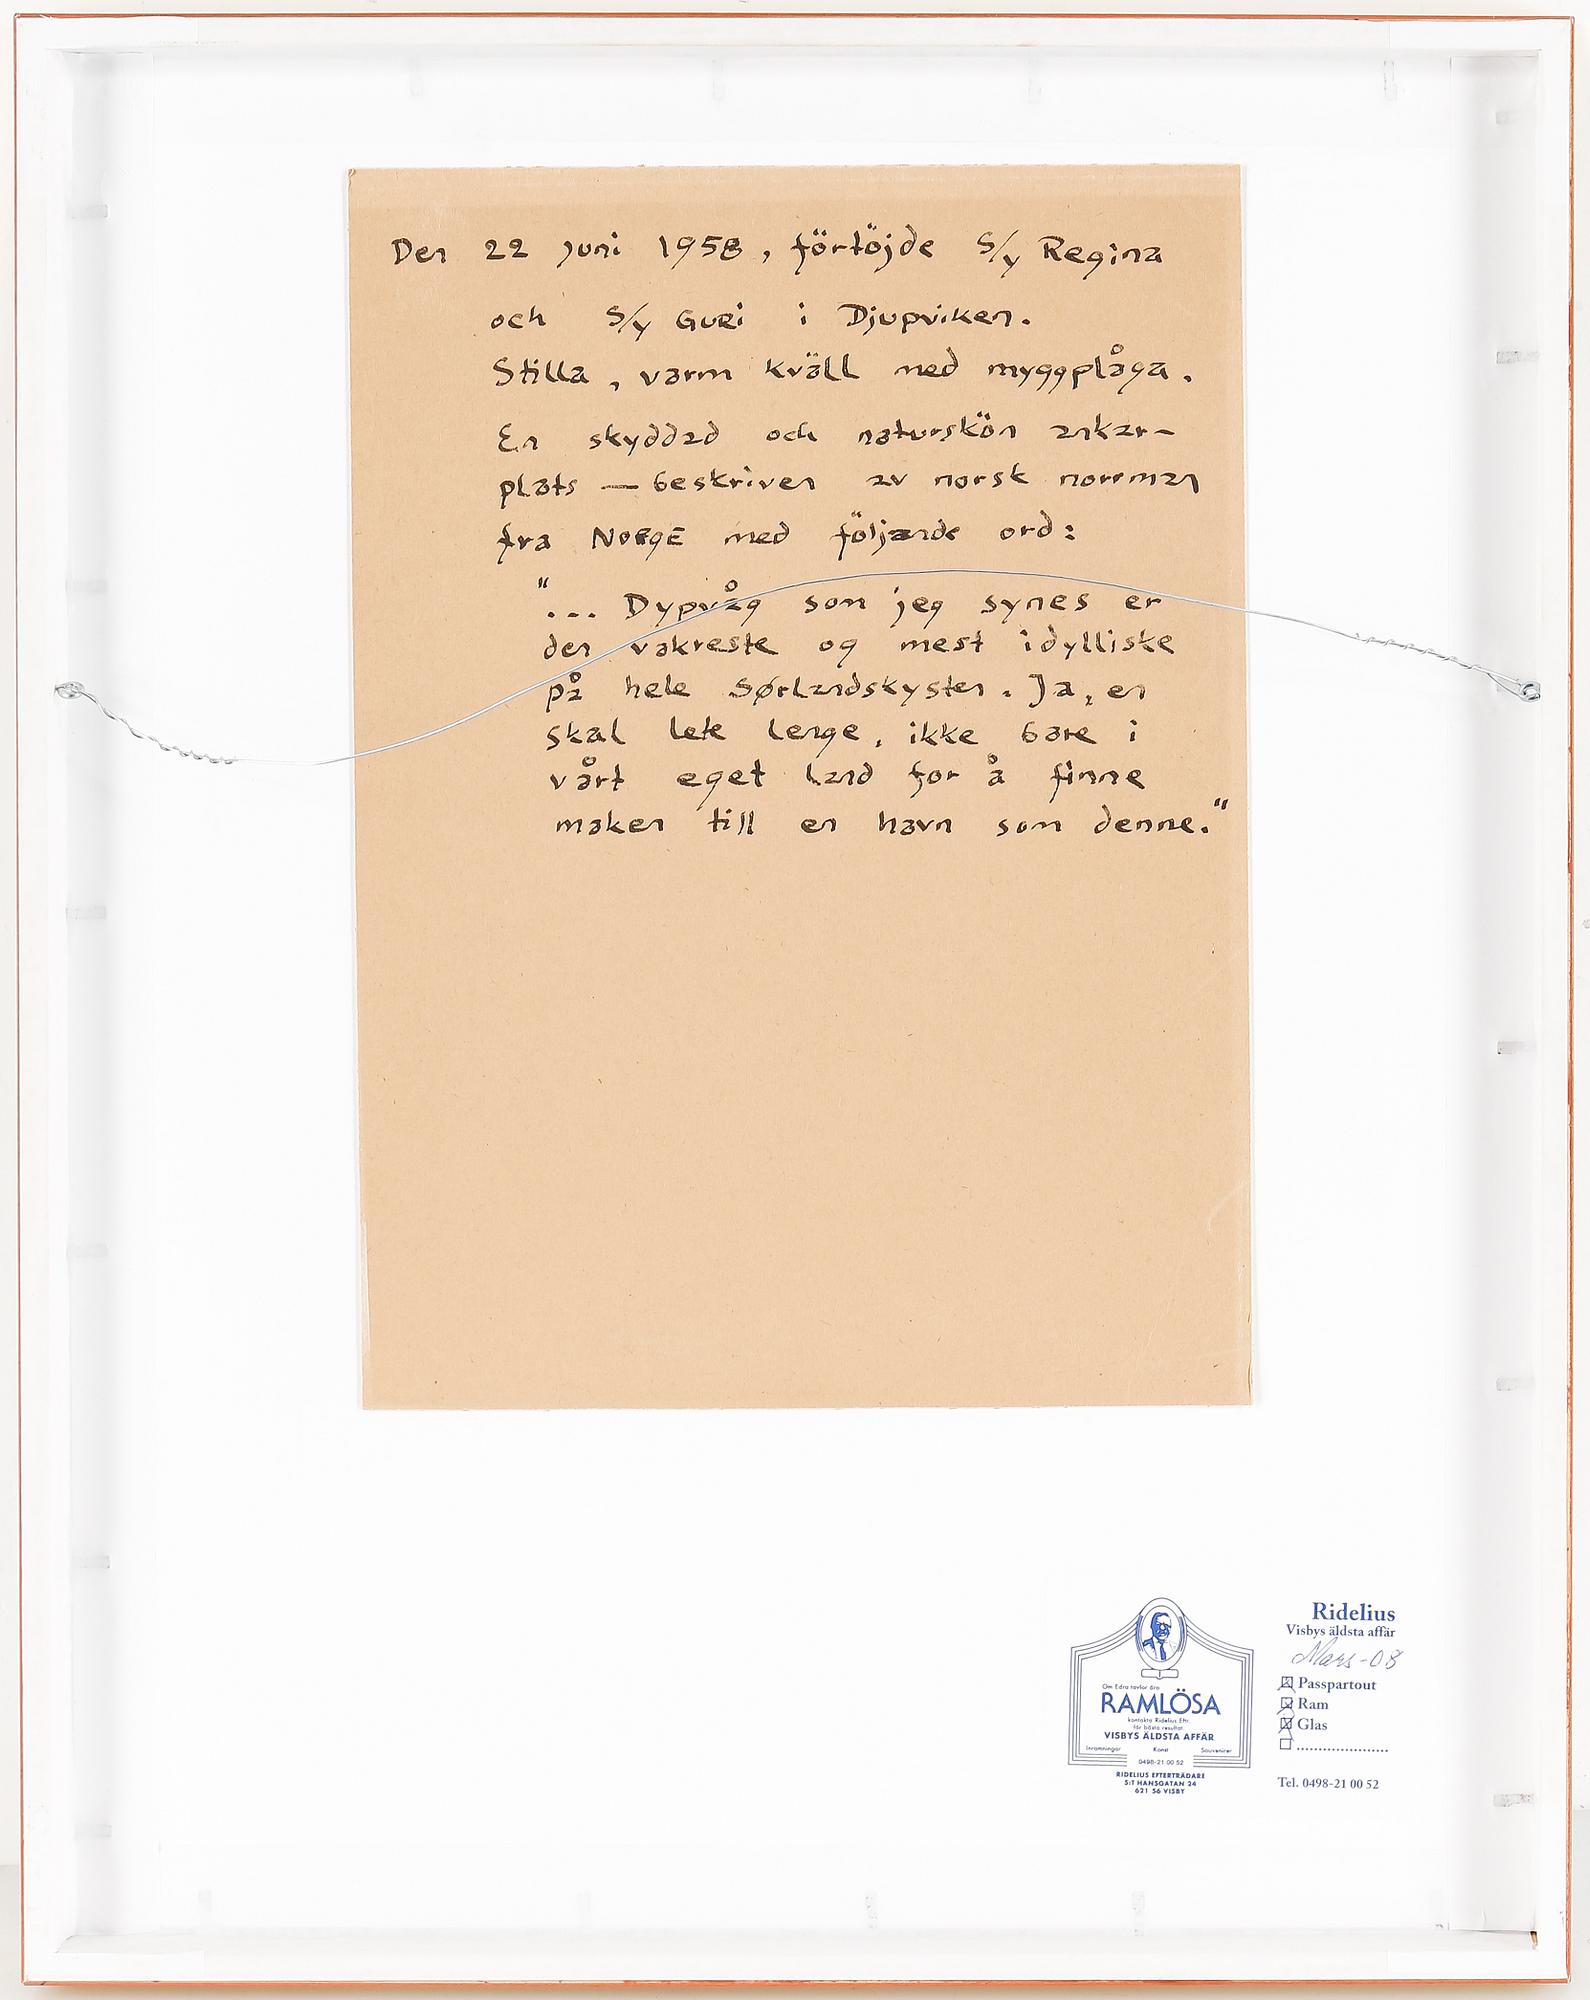 Den 22 Juni 1958, förtöjde S/y Regina
och S/y GURI i Djupviken.
Stilla, varm kväll med myggplåga.
En skyddad och naturskön ankar-
plats — beskriven av norsk norrman
fra NORGE med följande ord:
"... Dypvåg som jeg synes er
den vakreste og mest idylliske
på hele Sørlandskysten. Ja, en
skal lete lenge, ikke bare i
vårt eget land for å finne
maken till en havn som denne."
Om Edra tavlor äro
RAMLÖSA
kontakta Ridelius Eftr.
för bästa resultat.
VISBYS ÄLDSTA AFFÄR
Inramningar Konst Souvenirer
0498-21 00 52
RIDELIUS EFTERTRÄDARE
S:T HANSGATAN 24
621 56 VISBY
Ridelius
Visbys äldsta affär
Mars-08
Passpartout
Ram
Glas
Tel. 0498-21 00 52